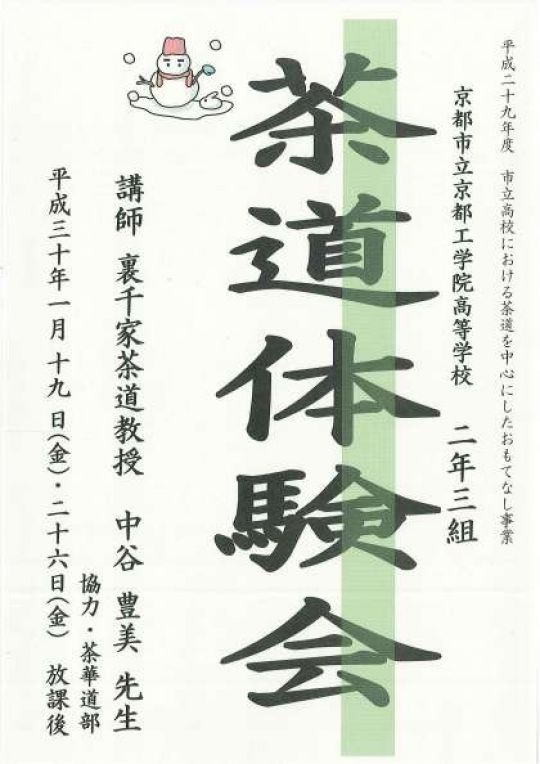 平成二十九年度 市立高校における茶道を中心にしたおもてなし事業
京都市立京都工学院高等学校 二年三組
茶道体験会
講師 裏千家茶道教授 中谷 豊美 先生
協力・茶華道部
平成三十年一月十九日(金)・二十六日(金) 放課後